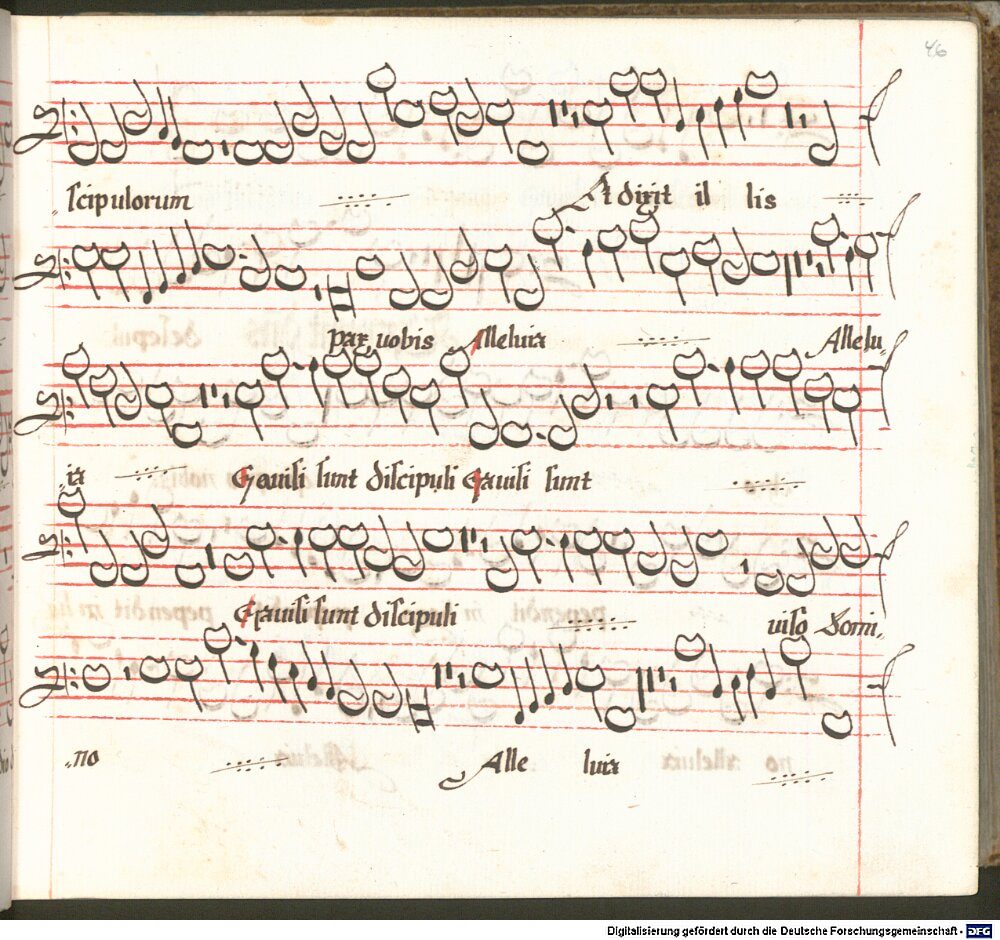 46
scipulorum Et dixit il lis
pax vobis Alleluia Allelu
ia Gauisi sunt discipuli Gauisi sunt
Gauisi sunt discipuli uiso Domi
no Alle luia
Digitalisierung gefördert durch die Deutsche Forschungsgemeinschaft - DFG